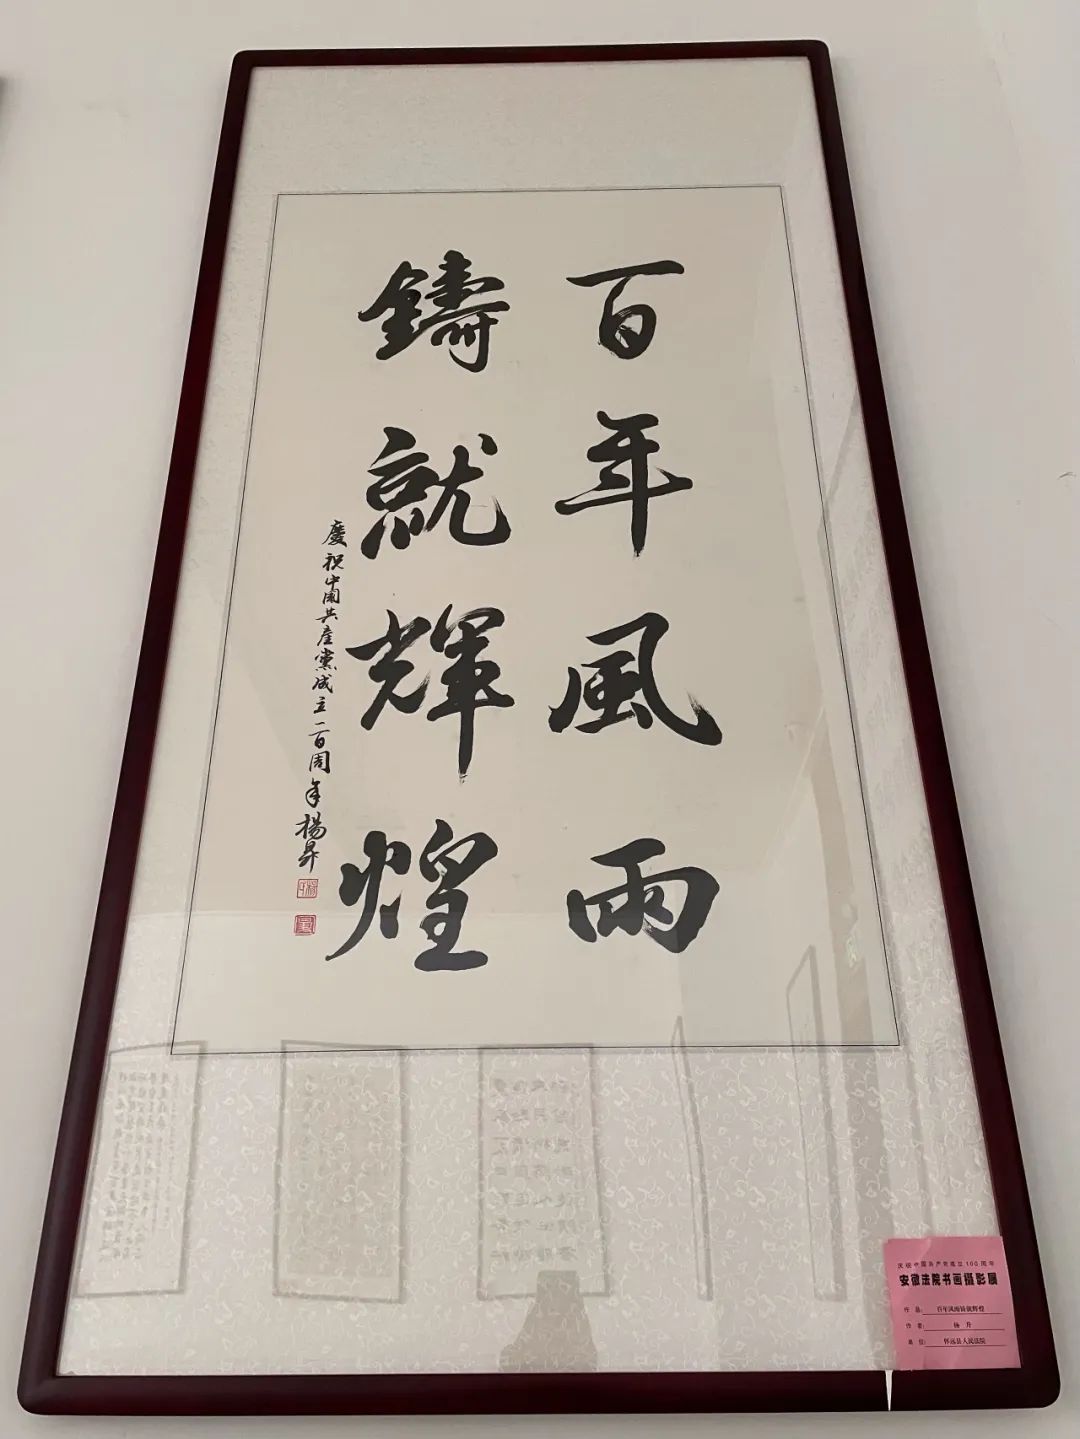 百年風雨
鑄就輝煌
慶祝中國共產黨成立一百周年 楊昇
庆祝中国共产党成立100周年
安徽法院书画摄影展
作品：百年风雨铸就辉煌
作者：杨升
单位：怀远县人民法院